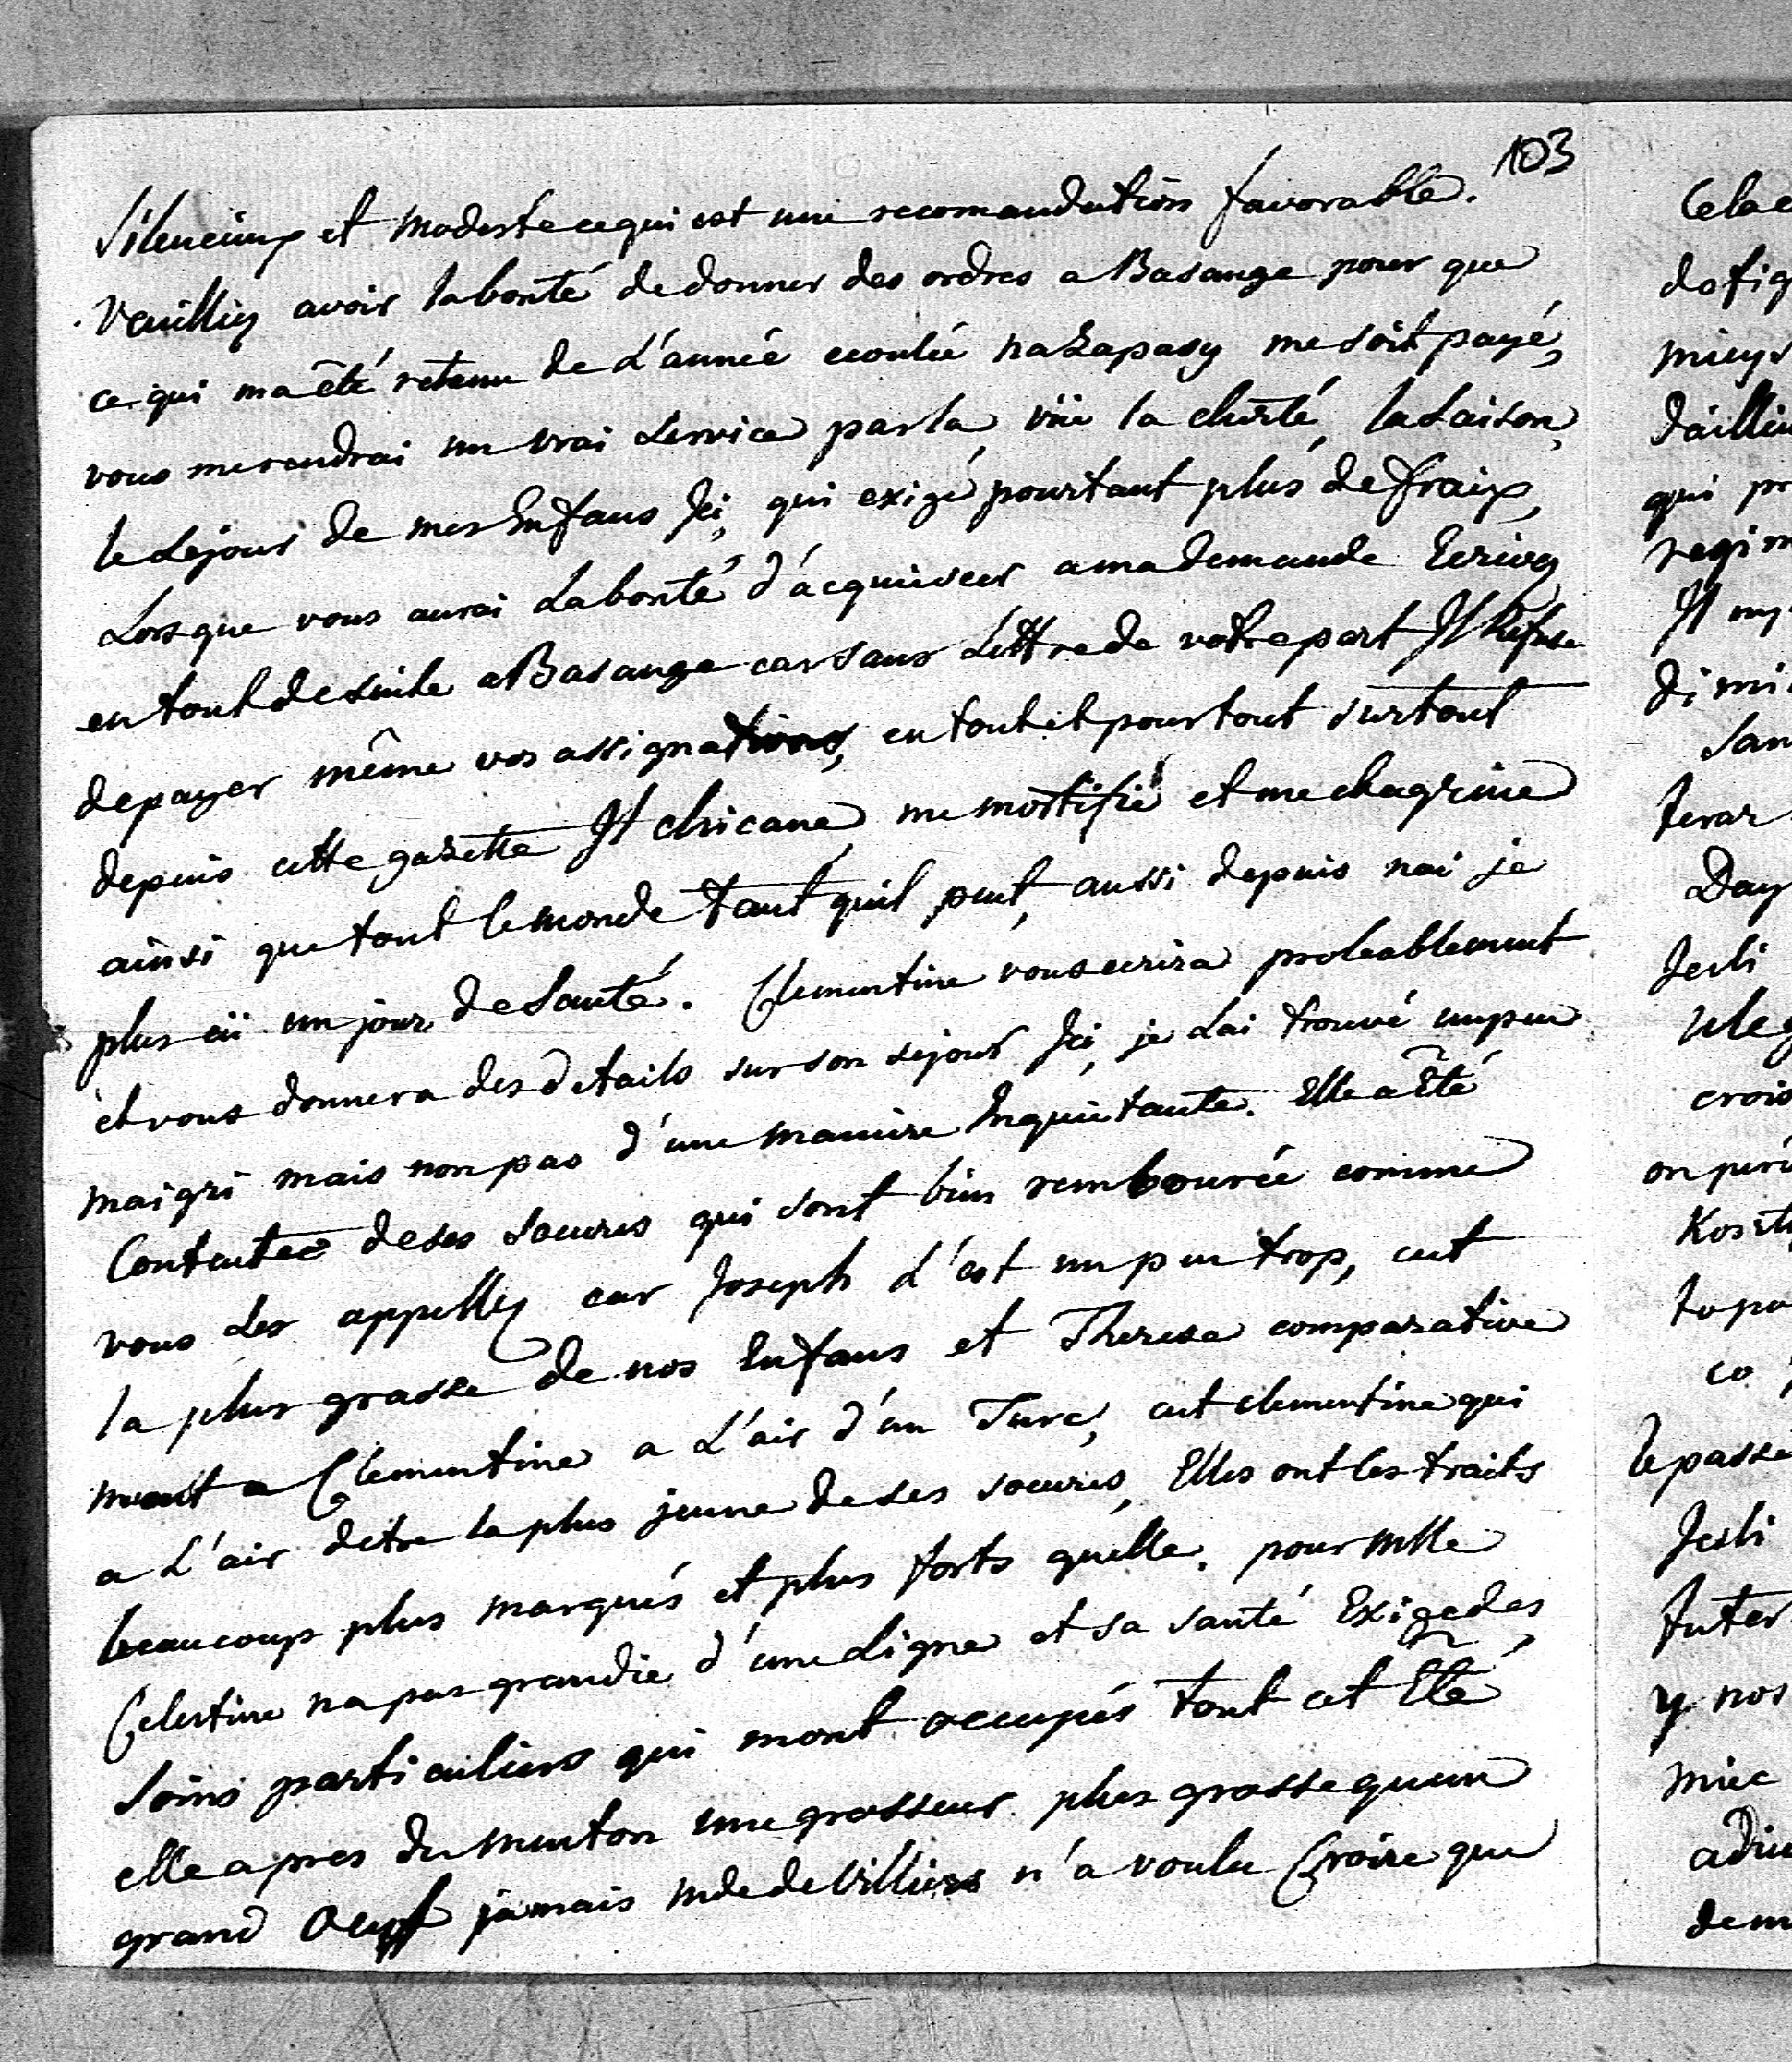 103
Silencieux et Modeste ce qui est une recomandation favorable.
Veuilliez avoir la bonté de donner des ordres a Basange pour que
ce qui ma êté retenu de L'année ecoulée na Zapasy me soit payé,
vous me rendrai un vrai Service par la, vüe la cherté, la Saison,
le Sejour de mes Enfans Jci, qui exigé pourtant plus de fraix,
Lorsque vous aurai La bonté d'acquiescer a ma demande Ecrivez
en tout de suite a Basange car sans Lettre de votre part Jl refuse
de payer même vos assignations, en tout et pour tout surtout
depuis cette gazette Jl chicane, me mortifié et me chagrine
ainsi que tout le monde tant quil peut, aussi depuis nai je
plus eü un jour de Santé. Clementine vous ecrira probablement
et vous donnera des détails sur son sejour Jci, je Lai trouvé un peu
maigri mais non pas d'une maniere Inquietante. Elle a Eté
Contentée de ses soeures qui sont bien rembourée comme
vous Les appellez car Joseph L'est un peu trop, cest
la plus grasse de nos Enfans et Therese comparative
ment a Clementine a L'air d'un Turc, cest clementine qui
a L'air detre la plus jeune de ses soeures, Elles ont les traits
beaucoup plus marqués et plus forts quelle. pour Mlle
Celestine na pas grandie d'une Ligne et sa santé Exige des
Soins particuliers qui mont occupés tout cet Eté,
elle a pres du menton une grosseur plus grosse quun
grand Oeuf jamais mde de Villiers n'a voulu Croire que